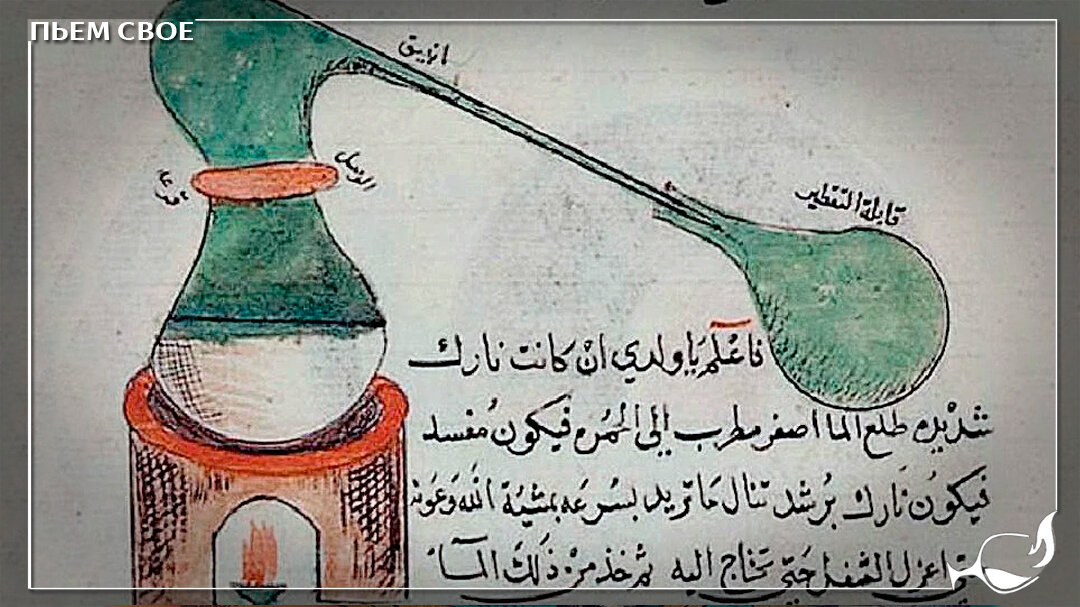 ПЬЕМ СВОЕ
انبيق
الوصل
قابلة التقطير
فاعْلم يَا ولدي انْ كانت نارك
شديده طلع الما اصفر مطرب الي الحمره فيكون مُفسد
فيكونُ نارك برُشد تنال ما تريد بسرعه بمشية الله وعونه
اعزل الثفل حتي تحتاج اليه ثم خذ منْ ذلك المآ